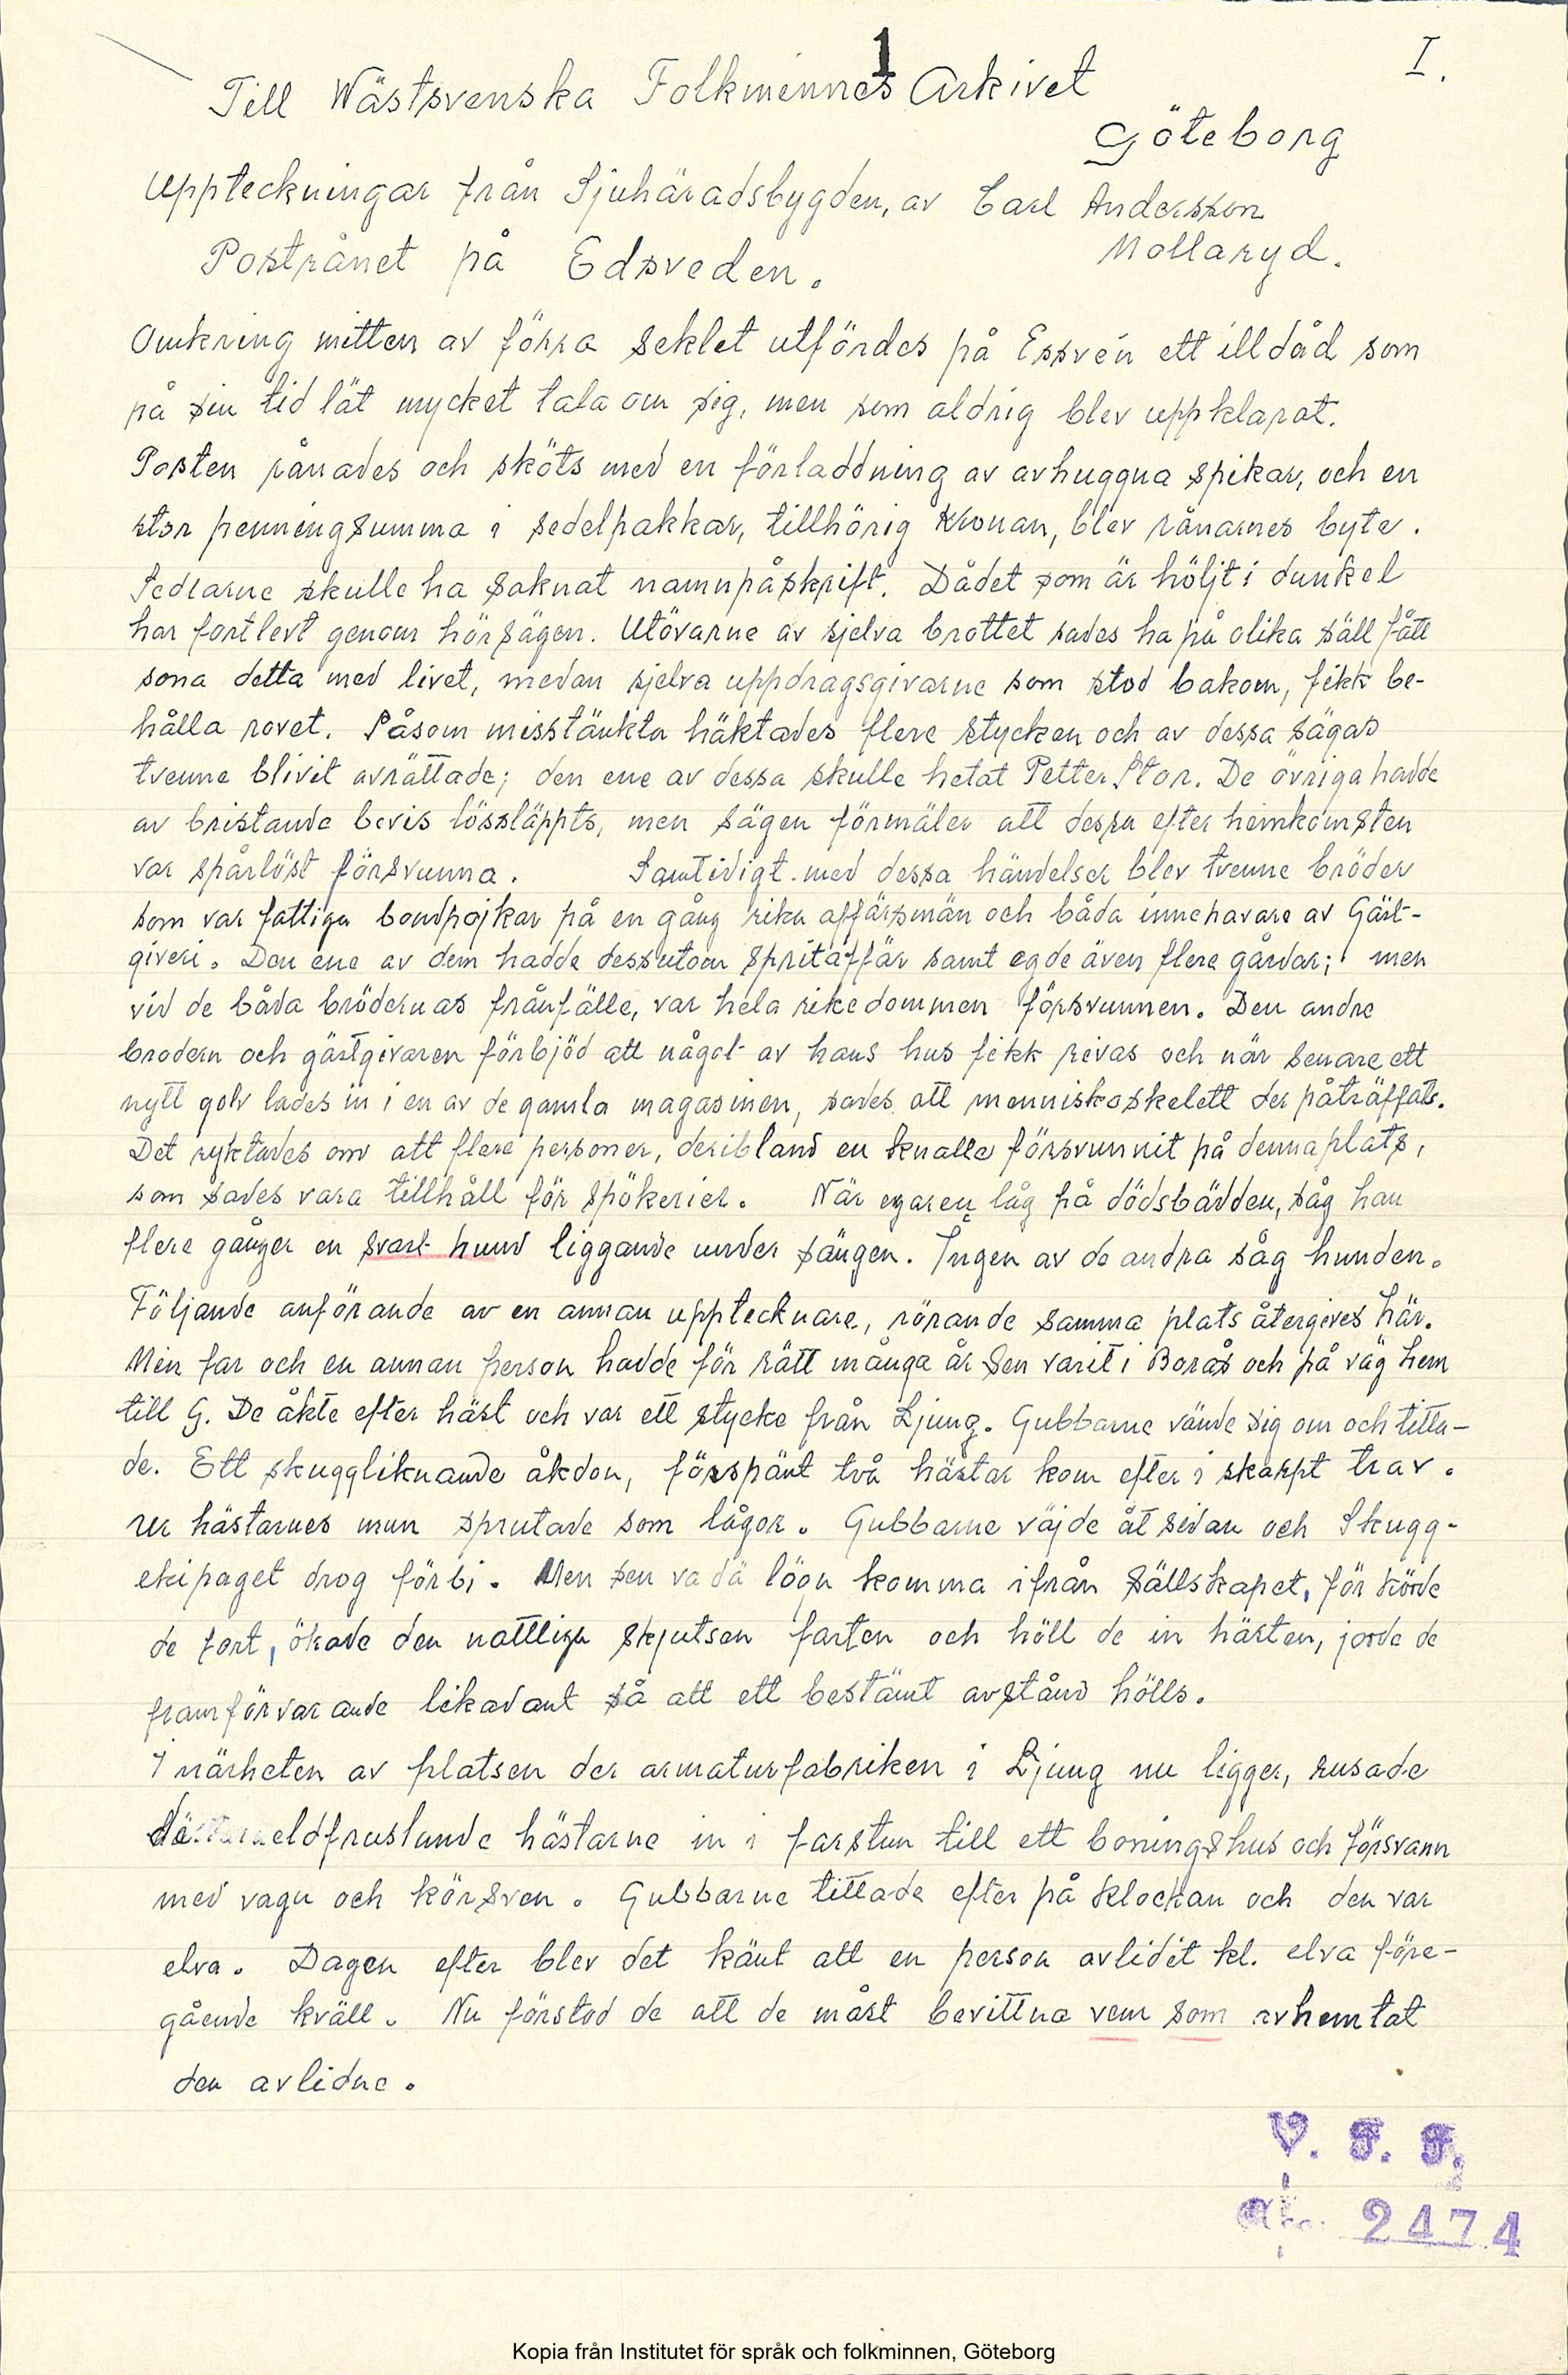 1
I.
Till Wästsvenska Folkminnes Arkivet
Göteborg
Uppteckningar från Sjuhäradsbygden, av Carl Andersson
Mollaryd.
Postrånet på Edsveden.
Omkring mitten av förra seklet utfördes på Essvén ett illdåd som
på sin tid lät mycket tala om sig, men som aldrig blev uppklarat.
Posten rånades och sköts med en förladdning av avhuggna spikar, och en
stor penningsumma i sedelpakkar, tillhörig Kronan, blev rånarnes byte.
Sedlarne skulle ha saknat namnpåskrift. Dådet som är höljt i dunkel
har fortlevt genom hörsägen. Utövarne av sjelva brottet sades ha på olika säll fått
sona detta med livet, medan sjelva uppdragsgivarne som stod bakom, fikk be-
hålla rovet. Såsom misstänkta häktades flere stycken och av dessa sägas
tvenne blivit avrättade; den ene av dessa skulle hetat Petter Stor. De övriga hadde
av bristande bevis lössläppts, men sägen förmäler att dessa efter hemkomsten
var spårlöst försvunna. Samtidigt med dessa händelser blev tvenne bröder
som var fattiga bondpojkar på en gång rika affärsmän och båda innehavare av Gäst-
giveri. Den ene av dem hadde dessutom spritaffär samt egde även flere gårdar; men
vid de båda brödernas frånfälle, var hela rikedommen försvunnen. Den andre
brodern och gästgivaren förbjöd att något av hans hus fikk rivas och när senare ett
nytt golv lades in i en av de gamla magasinen, sades att menniskoskelett der påträffats.
Det ryktades om att flere personer, deribland en knalle försvunnit på denna plats,
som sades vara tillhåll för spökerier. När egaren låg på dödsbädden, såg han
flere gånger en svart hund liggande under sängen. Ingen av de andra såg hunden.
Följande anförande av en annan upptecknare, rörande samma plats återgives här.
Min far och en annan person hadde för rätt många år sen varit i Borås och på väg hem
till G. De åkte efter häst och var ett stycke från Ljung. Gubbarne vände sig om och titta-
de. Ett skuggliknande åkdon, förspänt två hästar kom efter i skarpt trav.
ur hästarnes mun sprutade som lågor. Gubbarne väjde åt sidan och Skugg-
ekipaget drog förbi. Men sen va dä lögn komma ifrån sällskapet, för körde
de fort, ökade den nattliga skjutsen farten och höll de in hästen, jorde de
framförvarande likadant så att ett bestämt avstånd hölls.
I närheten av platsen der armaturfabriken i Ljung nu ligger, rusade
eldfrustande hästarne in i farstun till ett boningshus och försvann
med vagn och körsven. Gubbarne tittade efter på klockan och den var
elva. Dagen efter blev det känt att en person avlidit kl. elva före-
gående kväll. Nu förstod de att de måst bevittna vem som avhemtat
den avlidne.
V. F. F.
2474
Kopia från Institutet för språk och folkminnen, Göteborg